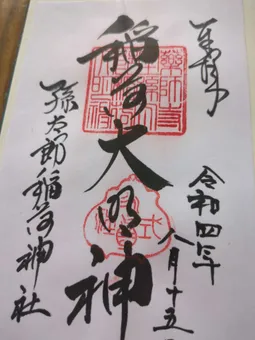 奉拝
令和四年
八月十五
稲荷大明神
孫太郎稲荷神社